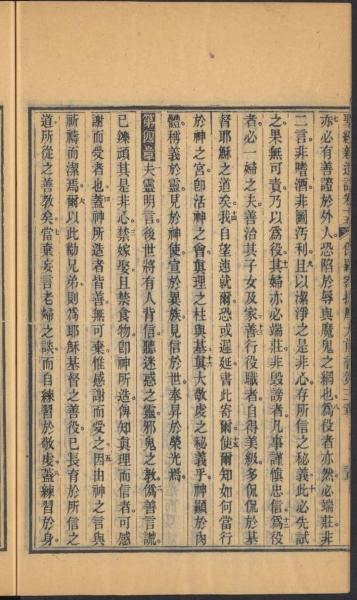 亦必有善證於外人恐陷於辱與魔鬼之網也爲役者亦然必端莊非
二言非嗜酒非圖污利且以潔淨之是非心存所信之秘義此必先試
之果無可責乃以爲役其婦亦必端莊非毀謗者凡事謹愼忠信爲役
者必一婦之夫善治其子女及家善行役職者自得美級多侃侃於基
督耶穌之道矣我自望速就爾恐或遲延書此寄爾使爾知如何當行
於神之宮卽活神之會眞理之柱與基眞大敬虔之秘義乎神顯於肉
體稱義於靈見於神使宣於異族見信於世奉昇於榮光焉
第四章夫靈明言後世將有人背信聽迷惑之靈邪鬼之教僞善言謊
已鑠頭其是非心禁嫁娶且禁食物卽神所造俾知眞理而信者可感
謝而受者也蓋神所造者皆善無可棄惟感謝而受之因由神之言與
祈禱而潔焉爾以此勸兄弟則爲耶穌基督之善役已長育於所信之
道所從之善教矣當棄妄言老婦之談而自練習於敬虔蓋練習於身